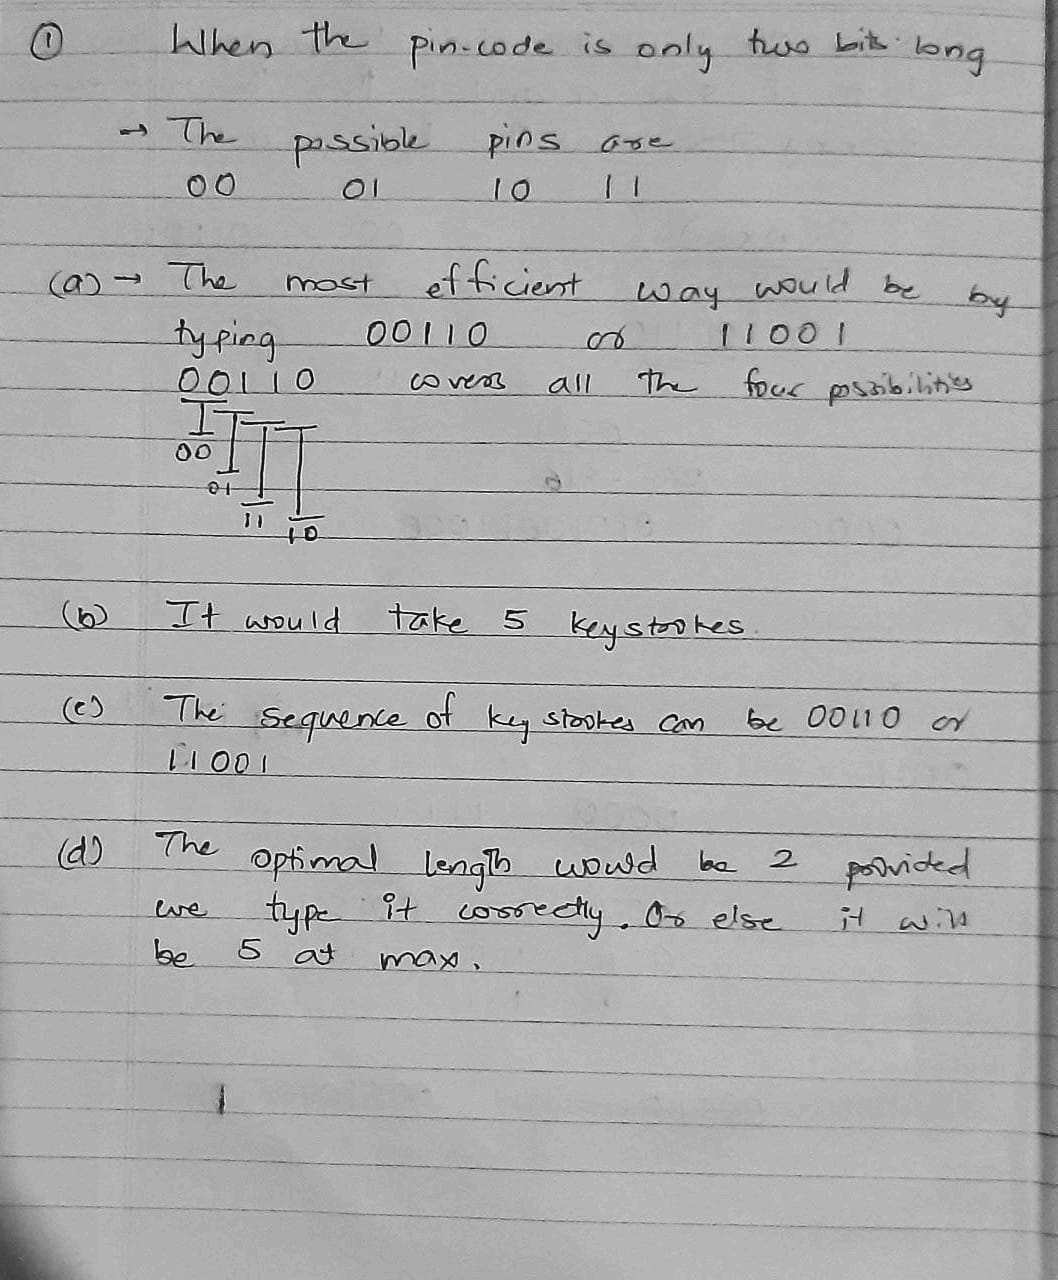 ① When the pin-code is only two bits long
→ The possible pins are
00 01 10 11
(a) → The most efficient way would be by
typing 00110 or 11001
00110 covers all the four possibilities
00
01
11 10
(b) It would take 5 keystrokes.
(c) The sequence of key strokes can be 00110 or
11001
(d) The optimal length would be 2 provided
we type it correctly. Or else it will
be 5 at max.